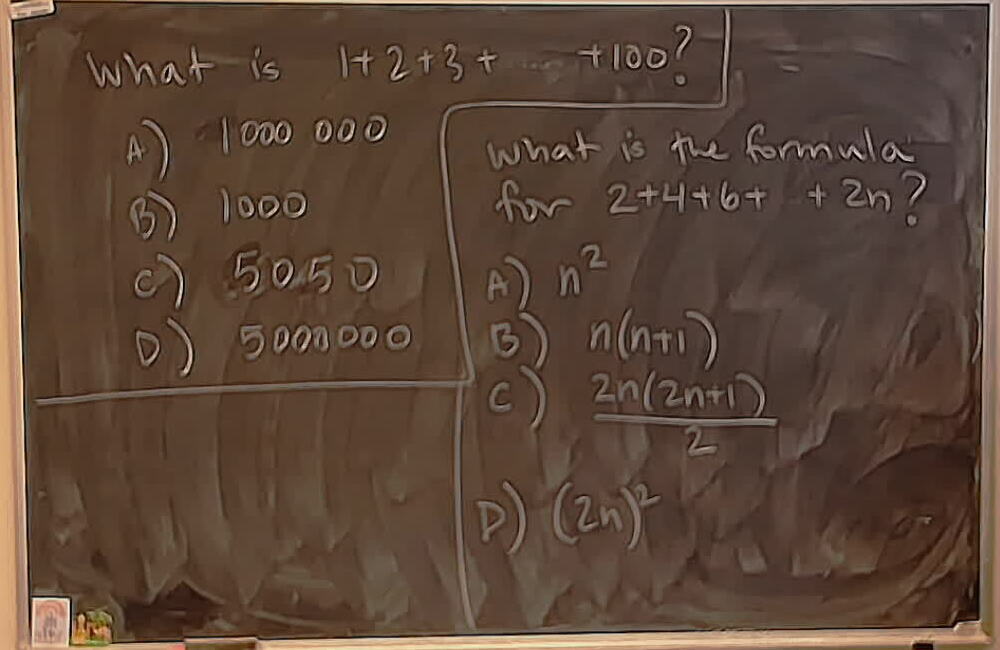 What is 1+2+3+ .... +100?
A) 1000 000
B) 1000
C) 5050
D) 5000000
What is the formula
for 2+4+6+ + 2n?
A) n²
B) n(n+1)
C) 2n(2n+1)
2
D) (2n)²